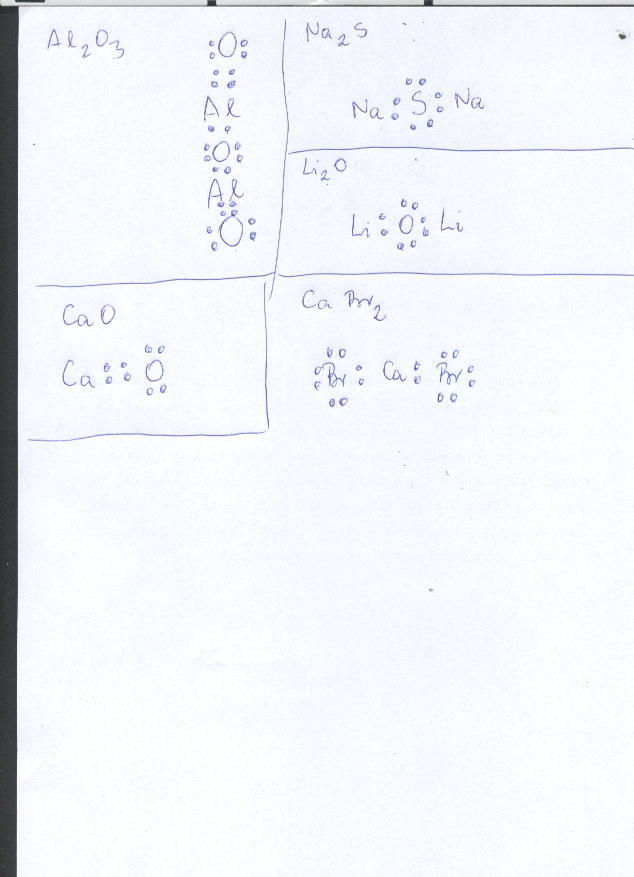 Al₂O₃
O
Al
O
Al
O
Na₂S
Na S Na
Li₂O
Li O Li
CaO
Ca O
CaBr₂
Br Ca Br